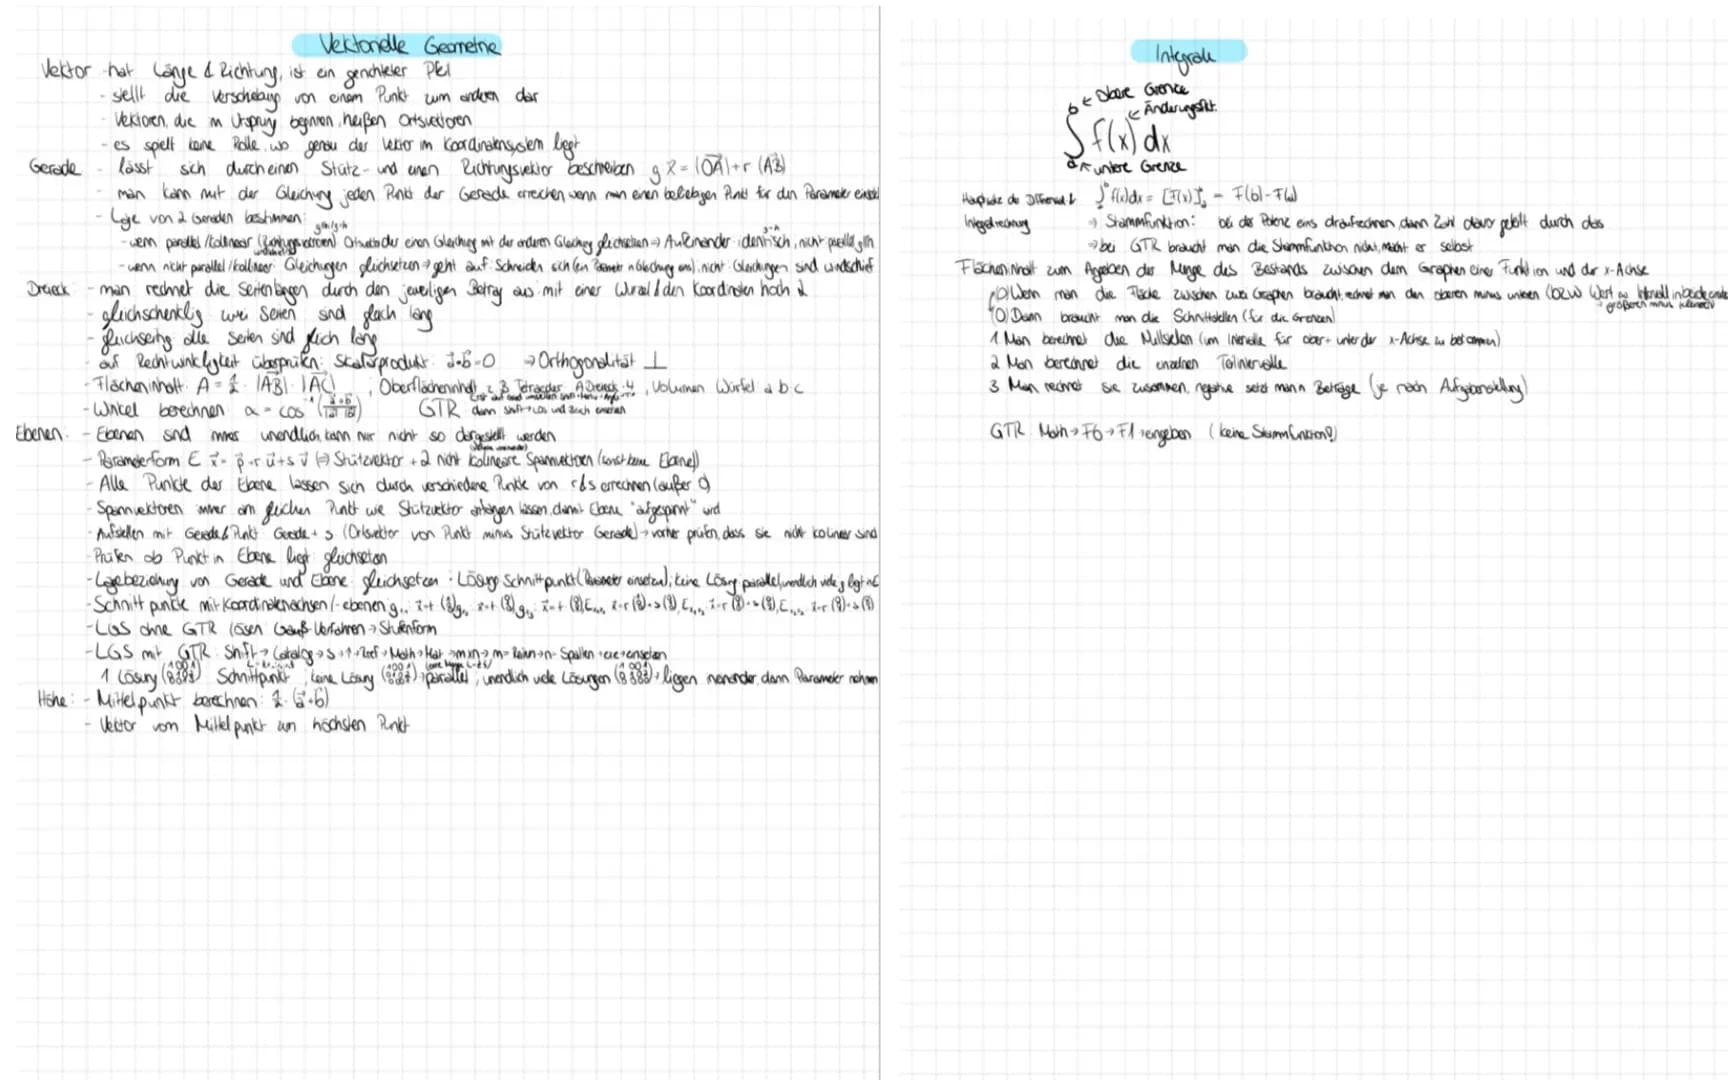 Vektorielle Geometrie
Vektor hat Länge & Richtung, ist ein gerichteter Pfeil
- stellt die Verschiebung von einem Punkt zum anderen dar
- Vektoren, die im Ursprung beginnen, heißen Ortsvektoren
- es spielt keine Rolle, wo genau der Vektor im Koordinatensystem liegt
Gerade - lässt sich durch einen Stütz- und einen Richtungsvektor beschreiben g: x⃗ = (OA⃗) + r (AB⃗)
- man kann mit der Gleichung jeden Punkt der Gerade erreichen, wenn man einen beliebigen Punkt für den Parameter
- Lage von 2 Geraden bestimmen:
- wenn parallel / kollinear Ortsvektor der einen Gleichung mit der anderen Gleichung gleichsetzen → Aufeinander: identisch, nicht: parallel g∥h
- wenn nicht parallel / kollinear: Gleichungen gleichsetzen → geht auf: Schneiden sich, nicht: Gleichungen sind windschief
Dreieck - man rechnet die Seitenlängen durch den jeweiligen Betrag aus mit einer Wurzel & den Koordinaten hoch 2
- gleichschenklig: zwei Seiten sind gleich lang
- gleichseitig: alle Seiten sind gleich lang
- auf Rechtwinkligkeit überprüfen: Skalarprodukt: a⃗ ∘ b⃗ = 0 → Orthogonalität ⊥
- Flächeninhalt: A = ½ · |AB⃗| · |AC⃗| ; Oberflächeninhalt z.B. Tetraeder: A Dreieck · 4, Volumen Würfel a·b·c
- Winkel berechnen: α = cos⁻¹ GTR: dann shift → cos und
Ebenen: - Ebenen sind immer unendlich, kann nur nicht so dargestellt werden
- Parameterform E: x⃗ = p⃗ + r·u⃗ + s·v⃗ Stützvektor + 2 nicht kollineare Spannvektoren (sonst keine Ebene!)
- Alle Punkte der Ebene lassen sich durch verschiedene Punkte von r & s errechnen (außer 0)
- Spannvektoren immer am gleichen Punkt wie Stützvektor anfangen lassen, damit Ebene "aufgespannt" wird
- Aufstellen mit Gerade & Punkt: Gerade + s · (Ortsvektor von Punkt minus Stützvektor Gerade) → vorher prüfen, dass sie nicht kollinear sind
- Prüfen ob Punkt in Ebene liegt: gleichsetzen
- Lagebeziehung von Gerade und Ebene: gleichsetzen: Lösung: Schnittpunkt (Parameter einsetzen); keine Lösung: parallel; unendlich viele: g liegt in E
- Schnittpunkte mit Koordinatenachsen/-ebenen:
- LGS ohne GTR lösen: Gauß-Verfahren → Stufenform
- LGS mit GTR: Shift → Catalog → s → ↑ → Rref → Math → Mat → m×n → m = Zeilen → n = Spalten → exe → einsetzen
1 Lösung Schnittpunkt, keine Lösung → parallel, unendlich viele Lösungen: liegen ineinander, dann Parameter nehmen
Höhe: - Mittelpunkt berechnen: ½ · (a⃗ + b⃗)
- Vektor vom Mittelpunkt zum höchsten Punkt
Integrale
b ← Obere Grenze
← Änderungsfkt.
∫ f(x) dx
a ← untere Grenze
Hauptsatz der Differenzial & ∫ f(x)dx = [F(x)] = F(b) - F(a)
Integralrechnung → Stammfunktion: bei der Potenz eins draufrechnen, dann Zahl davor geteilt durch das
→ bei GTR braucht man die Stammfunktion nicht, macht er selbst
Flächeninhalt zum Angeben der Menge des Bestands zwischen dem Graphen einer Funktion und der x-Achse
(0) Wenn man die Fläche zwischen zwei Graphen braucht, rechnet man den oberen minus unteren (bzw. Wert
größeren minus kleineren
(0) Dann braucht man die Schnittstellen (für die Grenzen)
1 Man berechnet die Nullstellen (um Intervalle für ober- & unter der x-Achse zu bekommen)
2 Man berechnet die einzelnen Teilintervalle
3 Man rechnet sie zusammen, negative setzt man in Beträge (je nach Aufgabenstellung)
GTR: Math → F6 → F1 → eingeben (keine Stammfunktion!)